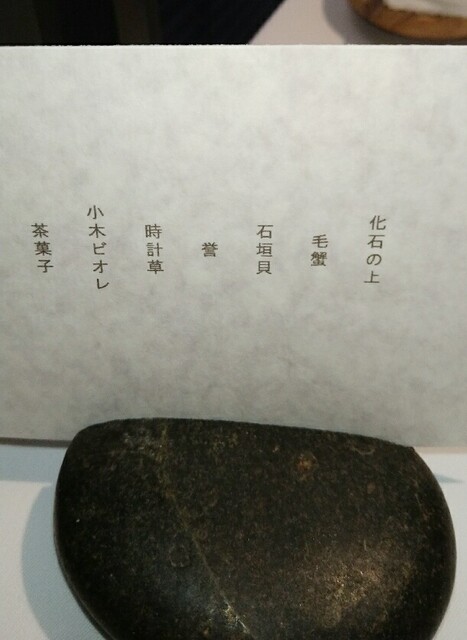 化石の上
毛蟹
石垣貝
誉
時計草
小木ビオレ
茶菓子